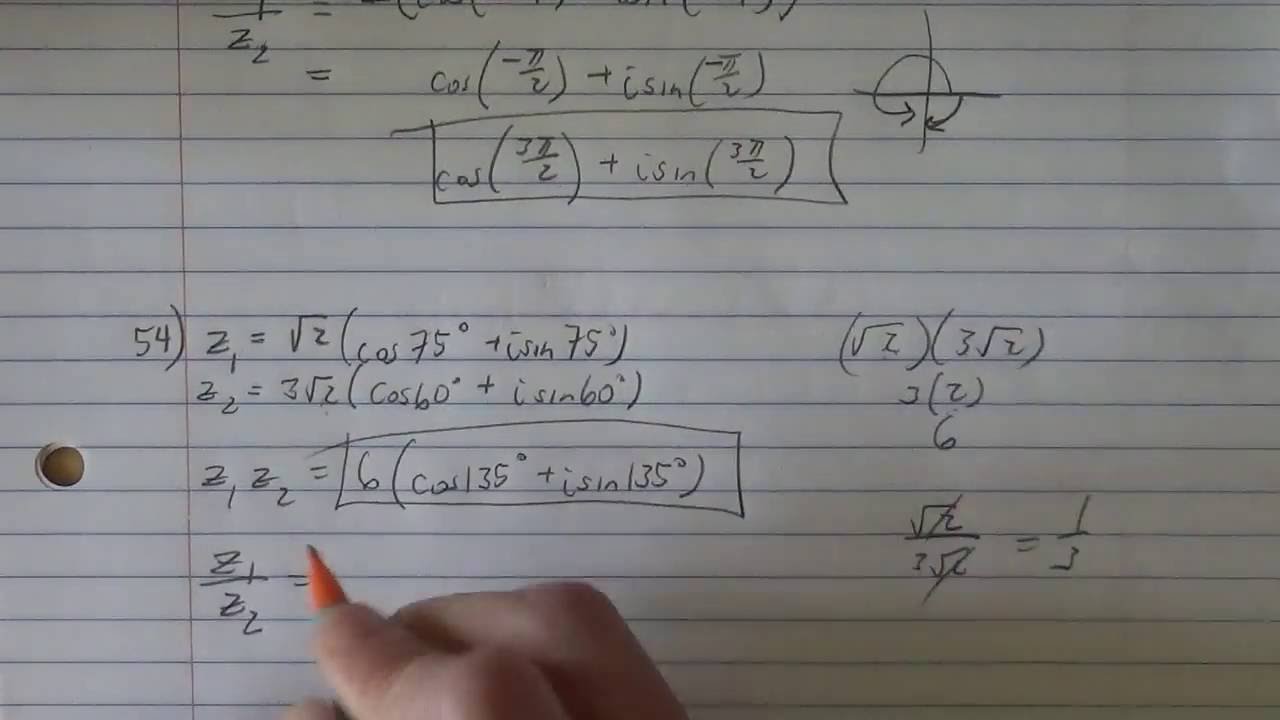 z₂
= cos(-π/2) + isin(-π/2)
cos(3π/2) + isin(3π/2)
54) z₁ = √2(cos75° + isin75°)
(√2)(3√2)
z₂ = 3√2(cos60° + isin60°)
3(2)
6
z₁ z₂ = 6(cos135° + isin135°)
√2/3√2 = 1/3
z₁/z₂ =